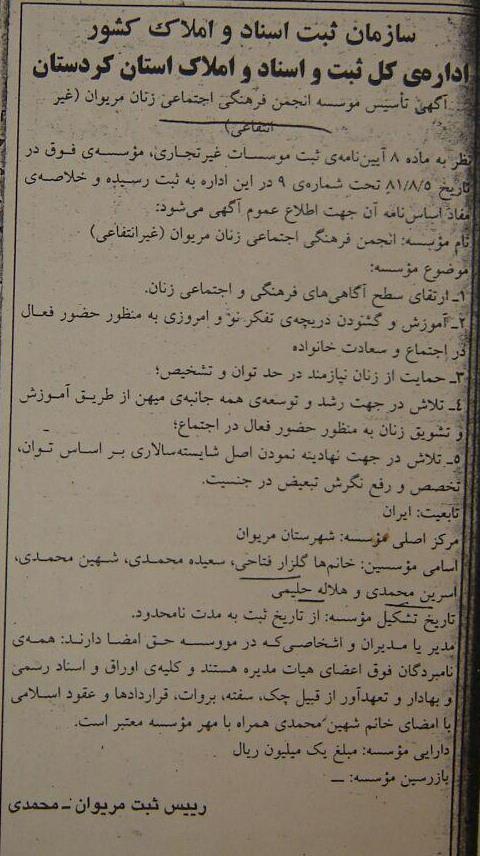 سازمان ثبت اسناد و املاک کشور
اداره‌ی کل ثبت و اسناد و املاک استان کردستان
آگهی تأسیس موسسه انجمن فرهنگی اجتماعی زنان مریوان (غیر
انتفاعی)
نظر به ماده ۸ آیین‌نامه‌ی ثبت موسسات غیرتجاری، مؤسسه‌ی فوق در
تاریخ ۸۱/۸/۵ تحت شماره‌ی ۹ در این اداره به ثبت رسیده و خلاصه‌ی
مفاد اساس‌نامه آن جهت اطلاع عموم آگهی می‌شود:
نام مؤسسه: انجمن فرهنگی اجتماعی زنان مریوان (غیرانتفاعی)
موضوع مؤسسه:
۱ـ ارتقای سطح آگاهی‌های فرهنگی و اجتماعی زنان.
۲ـ آموزش و گشودن دریچه‌ی تفکر نو و امروزی به منظور حضور فعال
در اجتماع و سعادت خانواده
۳ـ حمایت از زنان نیازمند در حد توان و تشخیص؛
۴ـ تلاش در جهت رشد و توسعه‌ی همه جانبه‌ی میهن از طریق آموزش
و تشویق زنان به منظور حضور فعال در اجتماع؛
۵ـ تلاش در جهت نهادینه نمودن اصل شایسته‌سالاری بر اساس توان،
تخصص و رفع نگرش تبعیض در جنسیت.
تابعیت: ایران
مرکز اصلی مؤسسه: شهرستان مریوان
اسامی مؤسسین: خانم‌ها گلزار فتاحی، سعیده محمدی، شهین محمدی،
اسرین محمدی و هلاله حلیمی
تاریخ تشکیل مؤسسه: از تاریخ ثبت به مدت نامحدود.
مدیر یا مدیران و اشخاصی‌که در مووسسه حق امضا دارند: همه‌ی
نامبردگان فوق اعضای هیات مدیره هستند و کلیه‌ی اوراق و اسناد رسمی
و بهادار و تعهدآور از قبیل چک، سفته، بروات، قراردادها و عقود اسلامی
با امضای خانم شهین محمدی همراه با مهر مؤسسه معتبر است.
دارایی مؤسسه: مبلغ یک میلیون ریال
بازرسین مؤسسه: ـــ
رییس ثبت مریوان ـ محمدی